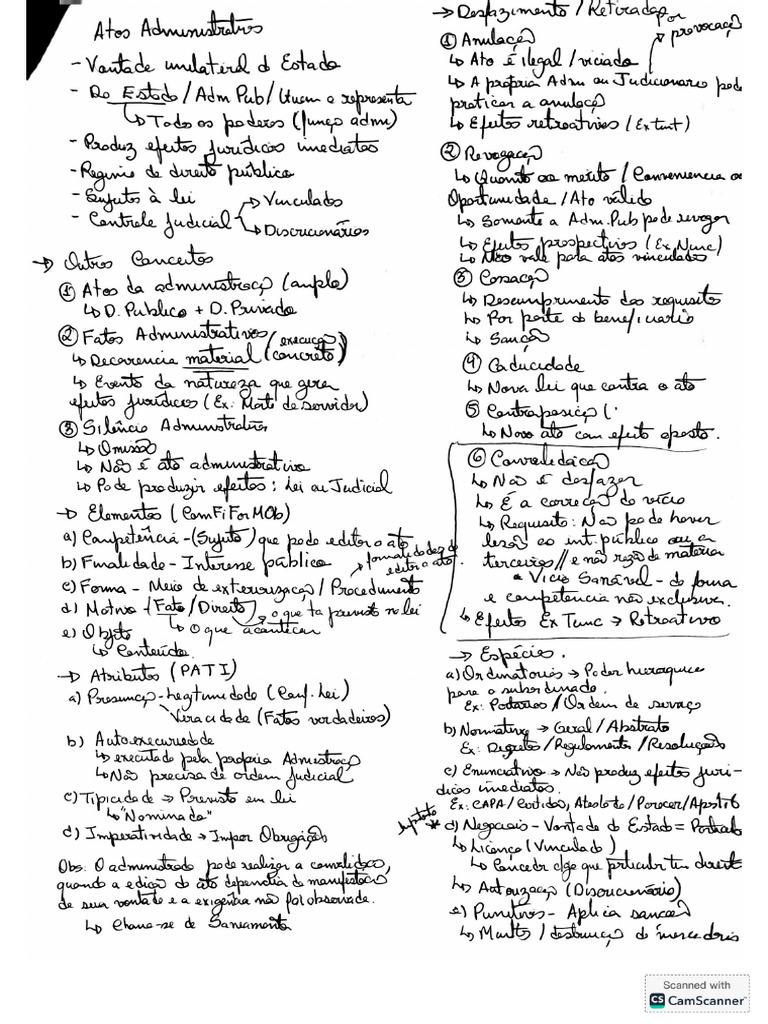 Atos Administrativos
- Vontade unilateral do Estado
- Do Estado / Adm Pub / Quem o representa
↳ Todos os poderes (função admi)
- Produz efeitos jurídicos imediatos
- Regime de direito público
- Sujeitos à lei
- Controle Judicial → Vinculados
↳ Discricionários
→ Outros Conceitos
① Atos da administração (amplo)
↳ D. Publico + D. Privado
② Fatos Administrativos (execução
↳ Decorrencia material concreto)
↳ Evento da natureza que gera
efeitos jurídicos (Ex: Morte de servidor)
③ Silêncio Administrativo
↳ Omissão
↳ Não é ato administrativo
↳ Pode produzir efeitos: Lei ou Judicial
→ Elementos (ComFiForMOb)
a) Competência - (Sujeito) que pode editor o ato
b) Finalidade - Interesse público
c) Forma - Meio de exteriorização / Procedimento
→ formalidades de
editor o ato.
d) Motivo - (Fato / Direito) → o que ta previsto na lei
↳ O que acontecer
e) Objeto
↳ Conteúdo.
→ Atributos (PATI)
a) Presunção - Legitimidade (Conf. Lei)
Veracidade (Fatos verdadeiros)
b) Autoexecutoriedade
↳ executado pela propria Administração
↳ Não precisa de ordem judicial
c) Tipicidade → Previsto em lei
↳ "Nominado"
d) Imperatividade → Impor Obrigações
Obs: O administrado pode realizar a convalidação,
quando a edição do ato dependia de manifestação
de sua vontade e a exigência não foi observada.
↳ Chama-se de Saneamento
→ Desfazimento / Retirada
por
provocação
① Anulação
↳ Ato é ilegal / viciado
↳ A própria Adm ou Judicionario pode
praticar a anulação
↳ Efeitos retroativos (Ex tunt)
② Revogação
↳ Quanto ao merito / Conveniencia ou
Oportunidade / Ato válido
↳ Somente a Adm. Pub pode revogar
↳ Efeitos prospectivos (Ex Nunc)
↳ Não vale para atos vinculados
③ Cassação
↳ Descumprimento dos requisitos
↳ Por parte do beneficiario
↳ Sanção
④ Caducidade
↳ Nova lei que contra o ato
⑤ Contraposição (
↳ Novo ato com efeito oposto.
⑥ Convalidação
↳ Não é desfazer
↳ É a correção do vício
↳ Requisito: Não pode haver
lesão ao int. público ou a
terceiros // e não razão de materia
Vício Sanável - de forma
e competencia não exclusiva.
↳ Efeitos Ex Tunc → Retroativo
→ Espécies.
a) Ordinatorios → Poder hierarquico
para o subordinado.
Ex: Portarias / Ordem de serviço
b) Normativo → Geral / Abstrato
Ex: Decretos / Regulamentos / Resoluções
c) Enunciativo → Não produz efeitos jurí-
dicos imediatos.
Ex: CAPA / Certidões, Atestado / Parecer / Apostila
* d) Negociais - Vontade do Estado =
↳ Licença (Vinculado)
↳ Conceder algo que particular tem direito
↳ Autorização (Discricionário)
e) Punitivos - Aplica sanção
↳ Multas / destruição de mercadorias
Scanned with
CS CamScanner